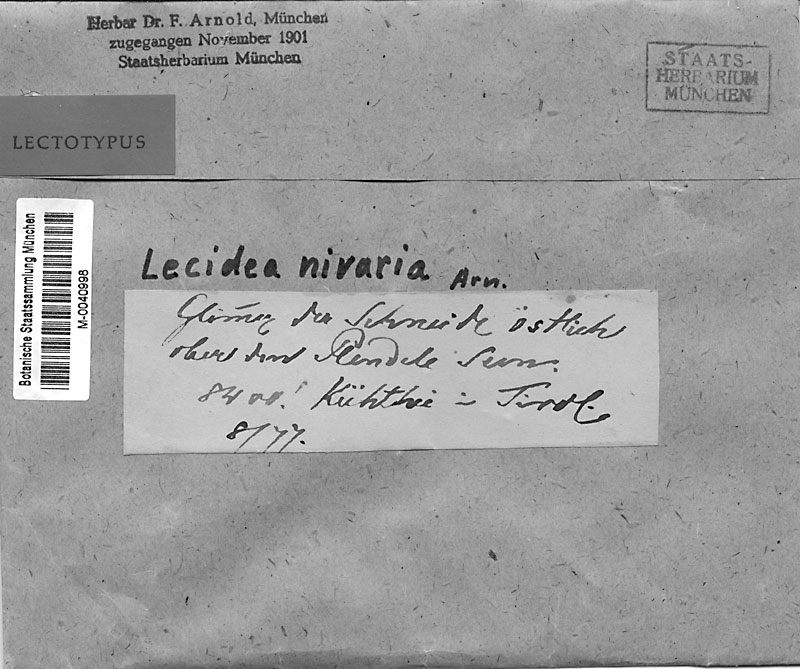 Herbar Dr. F. Arnold, München
zugegangen November 1901
Staatsherbarium München
STAATS-
HERBARIUM
MÜNCHEN
LECTOTYPUS
Botanische Staatssammlung München
M-0040998
Lecidea nivaria Arn.
Glimer der Schneide östlich
ober dem
8400! Kühthei in Tirol.
8/77.